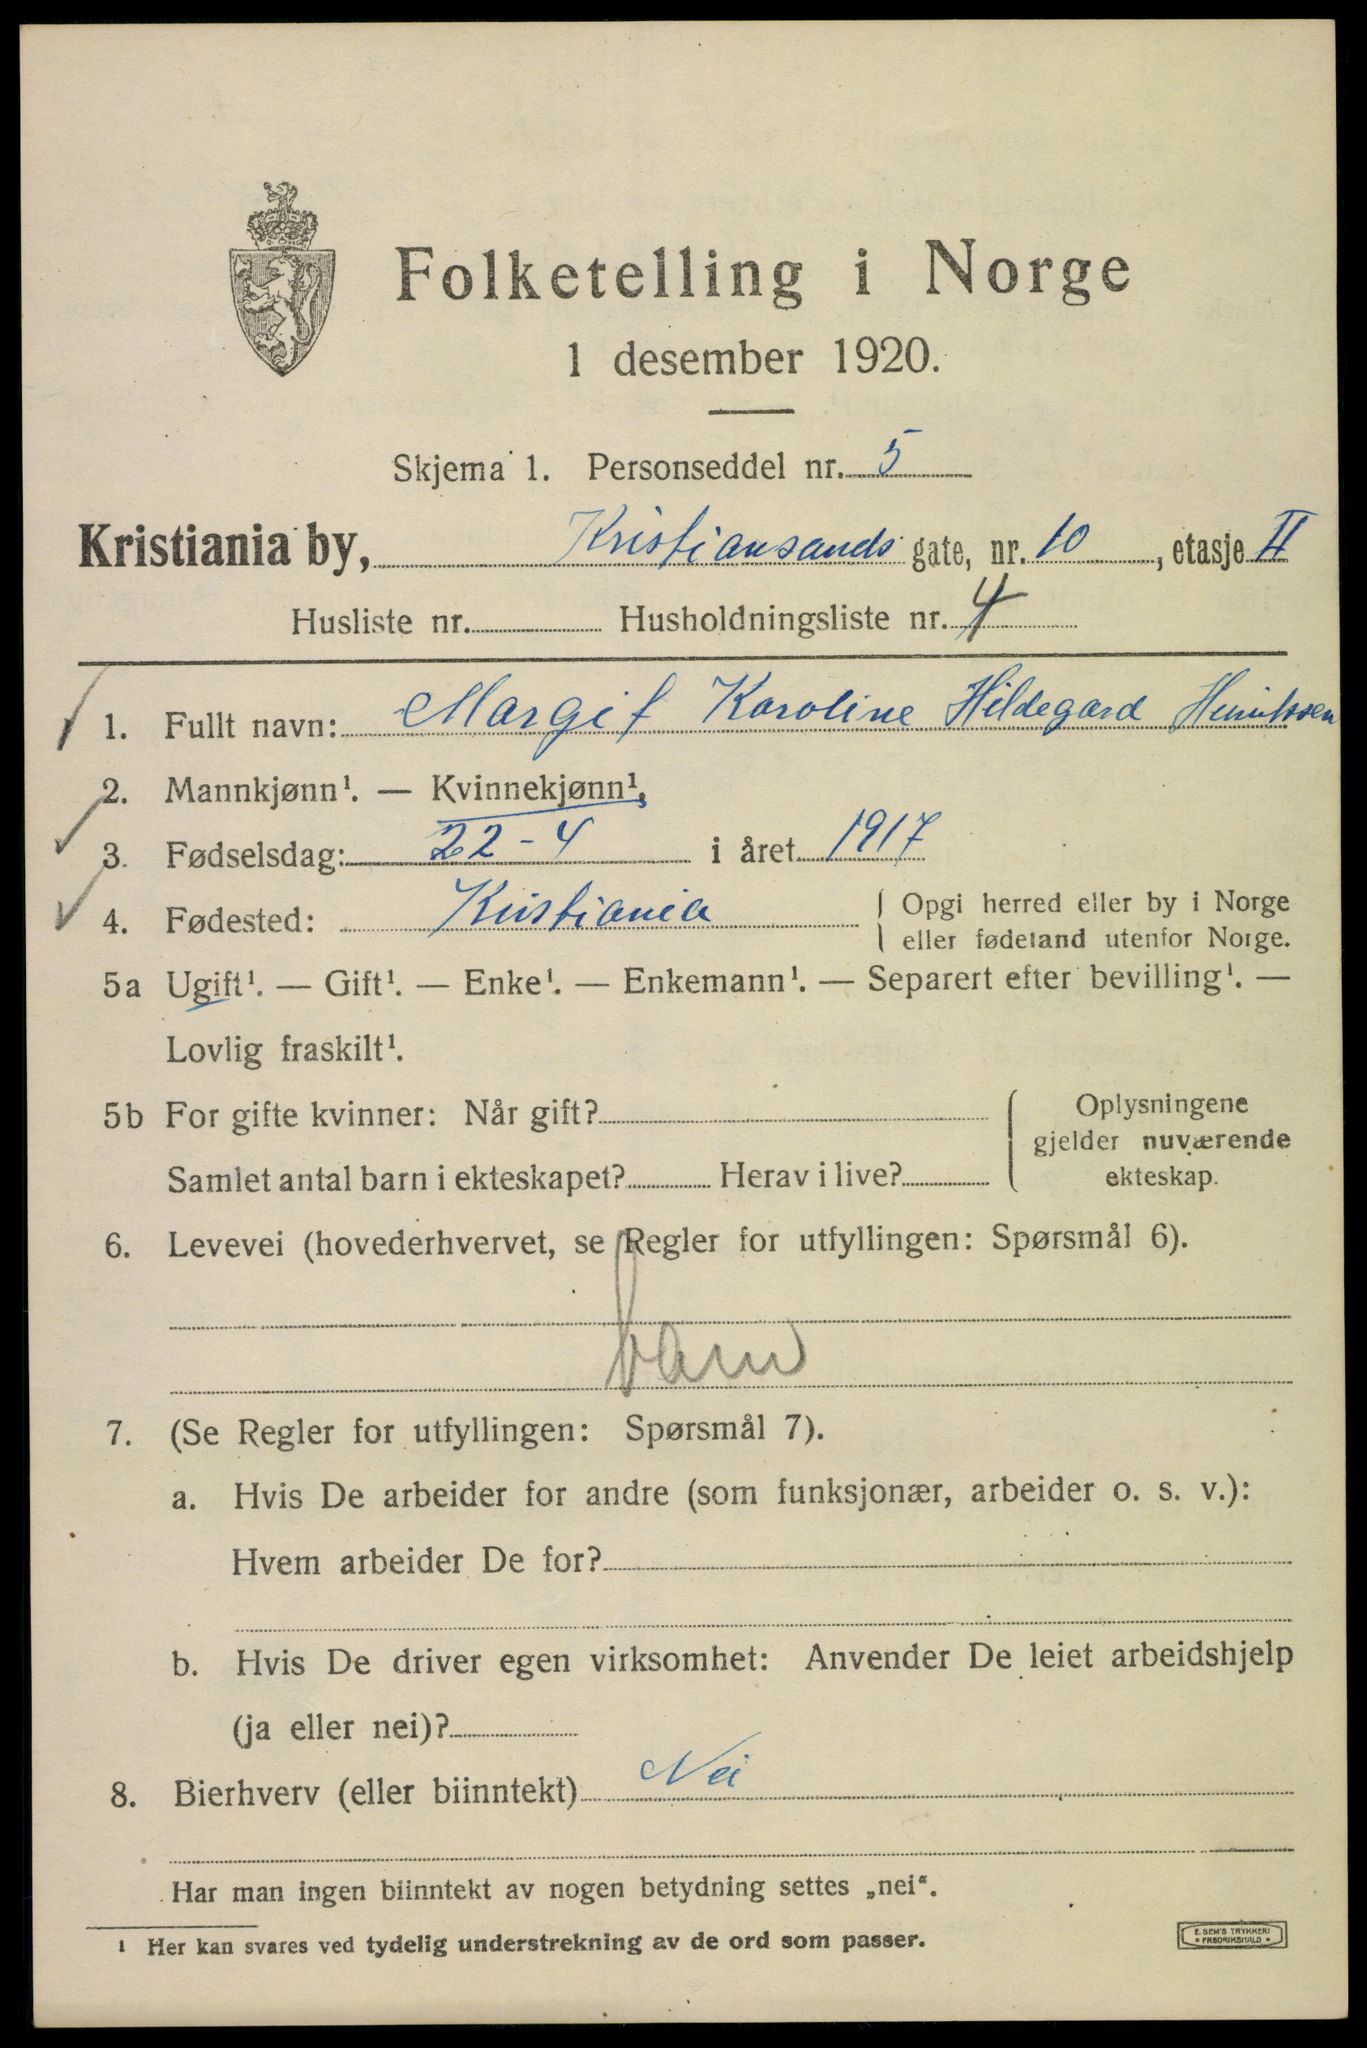 Folketelling i Norge
1 desember 1920.
Skjema 1. Personseddel nr. 5
Kristiania by, Kristiansands gate, nr. 10, etasje II
Husliste nr. Husholdningsliste nr. 4
1. Fullt navn: Margit Karoline Hildegard Henriksen
2. Mannkjønn¹. — Kvinnekjønn¹.
3. Fødselsdag: 22-4 i året 1917
4. Fødested: Kristiania { Opgi herred eller by i Norge
eller fødeland utenfor Norge.
5a Ugift¹. — Gift¹. — Enke¹. — Enkemann¹. — Separert efter bevilling¹. —
Lovlig fraskilt¹.
5b For gifte kvinner: Når gift? { Oplysningene
gjelder nuværende
Samlet antal barn i ekteskapet? Herav i live? ekteskap.
6. Levevei (hovederhvervet, se Regler for utfyllingen: Spørsmål 6).
barn
7. (Se Regler for utfyllingen: Spørsmål 7).
a. Hvis De arbeider for andre (som funksjonær, arbeider o. s. v.):
Hvem arbeider De for?
b. Hvis De driver egen virksomhet: Anvender De leiet arbeidshjelp
(ja eller nei)?
8. Bierhverv (eller biinntekt) Nei
Har man ingen biinntekt av nogen betydning settes „nei“.
¹ Her kan svares ved tydelig understrekning av de ord som passer.
E. SEM'S TRYKKERI
FREDRIKSHALD